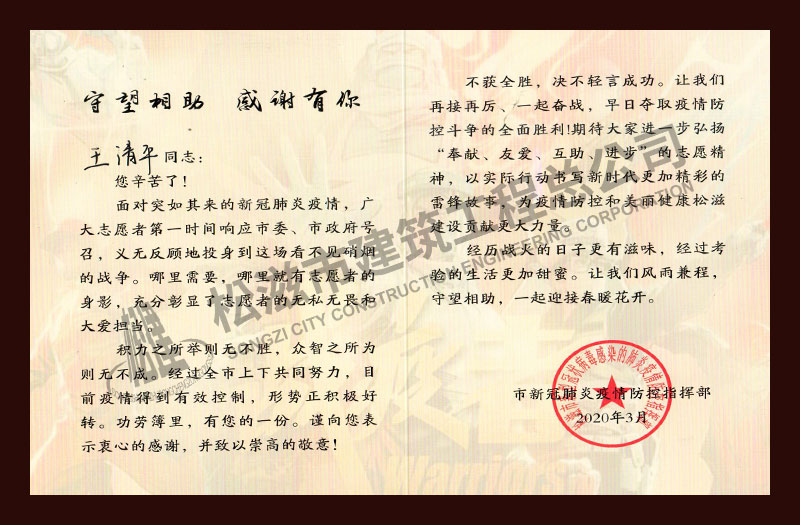 守望相助 感谢有你
王清平同志：
您辛苦了！
面对突如其来的新冠肺炎疫情，广
大志愿者第一时间响应市委、市政府号
召，义无反顾地投身到这场看不见硝烟
的战争。哪里需要，哪里就有志愿者的
身影，充分彰显了志愿者的无私无畏和
大爱担当。
积力之所举则无不胜，众智之所为
则无不成。经过全市上下共同努力，目
前疫情得到有效控制，形势正积极好
转。功劳簿里，有您的一份。谨向您表
示衷心的感谢，并致以崇高的敬意！
不获全胜，决不轻言成功。让我们
再接再厉、一起奋战，早日夺取疫情防
控斗争的全面胜利!期待大家进一步弘扬
“奉献、友爱、互助、进步”的志愿精
神，以实际行动书写新时代更加精彩的
雷锋故事，为疫情防控和美丽健康松滋
建设贡献更大力量。
经历战火的日子更有滋味，经过考
验的生活更加甜蜜。让我们风雨兼程，
守望相助，一起迎接春暖花开。
市新冠肺炎疫情防控指挥部
2020年3月
松滋市建筑工程总公司
SONGZI CITY CONSTRUCTION ENGINEERING CORPORATION
Warriors